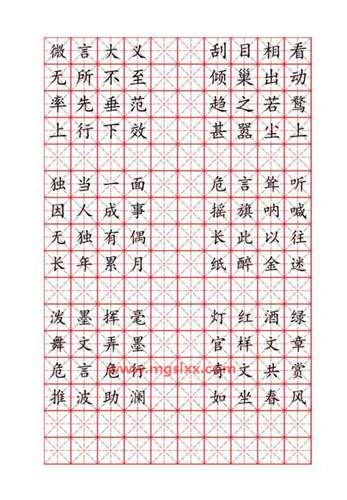 微言大义 刮目相看
无所不至 倾巢出动
率先垂范 趋之若鹜
上行下效 甚嚣尘上
独当一面 危言耸听
因人成事 摇旗呐喊
无独有偶 长此以往
长年累月 纸醉金迷
泼墨挥毫 灯红酒绿
舞文弄墨 官样文章
危言危行 奇文共赏
www.mgslxx.com
推波助澜 如坐春风